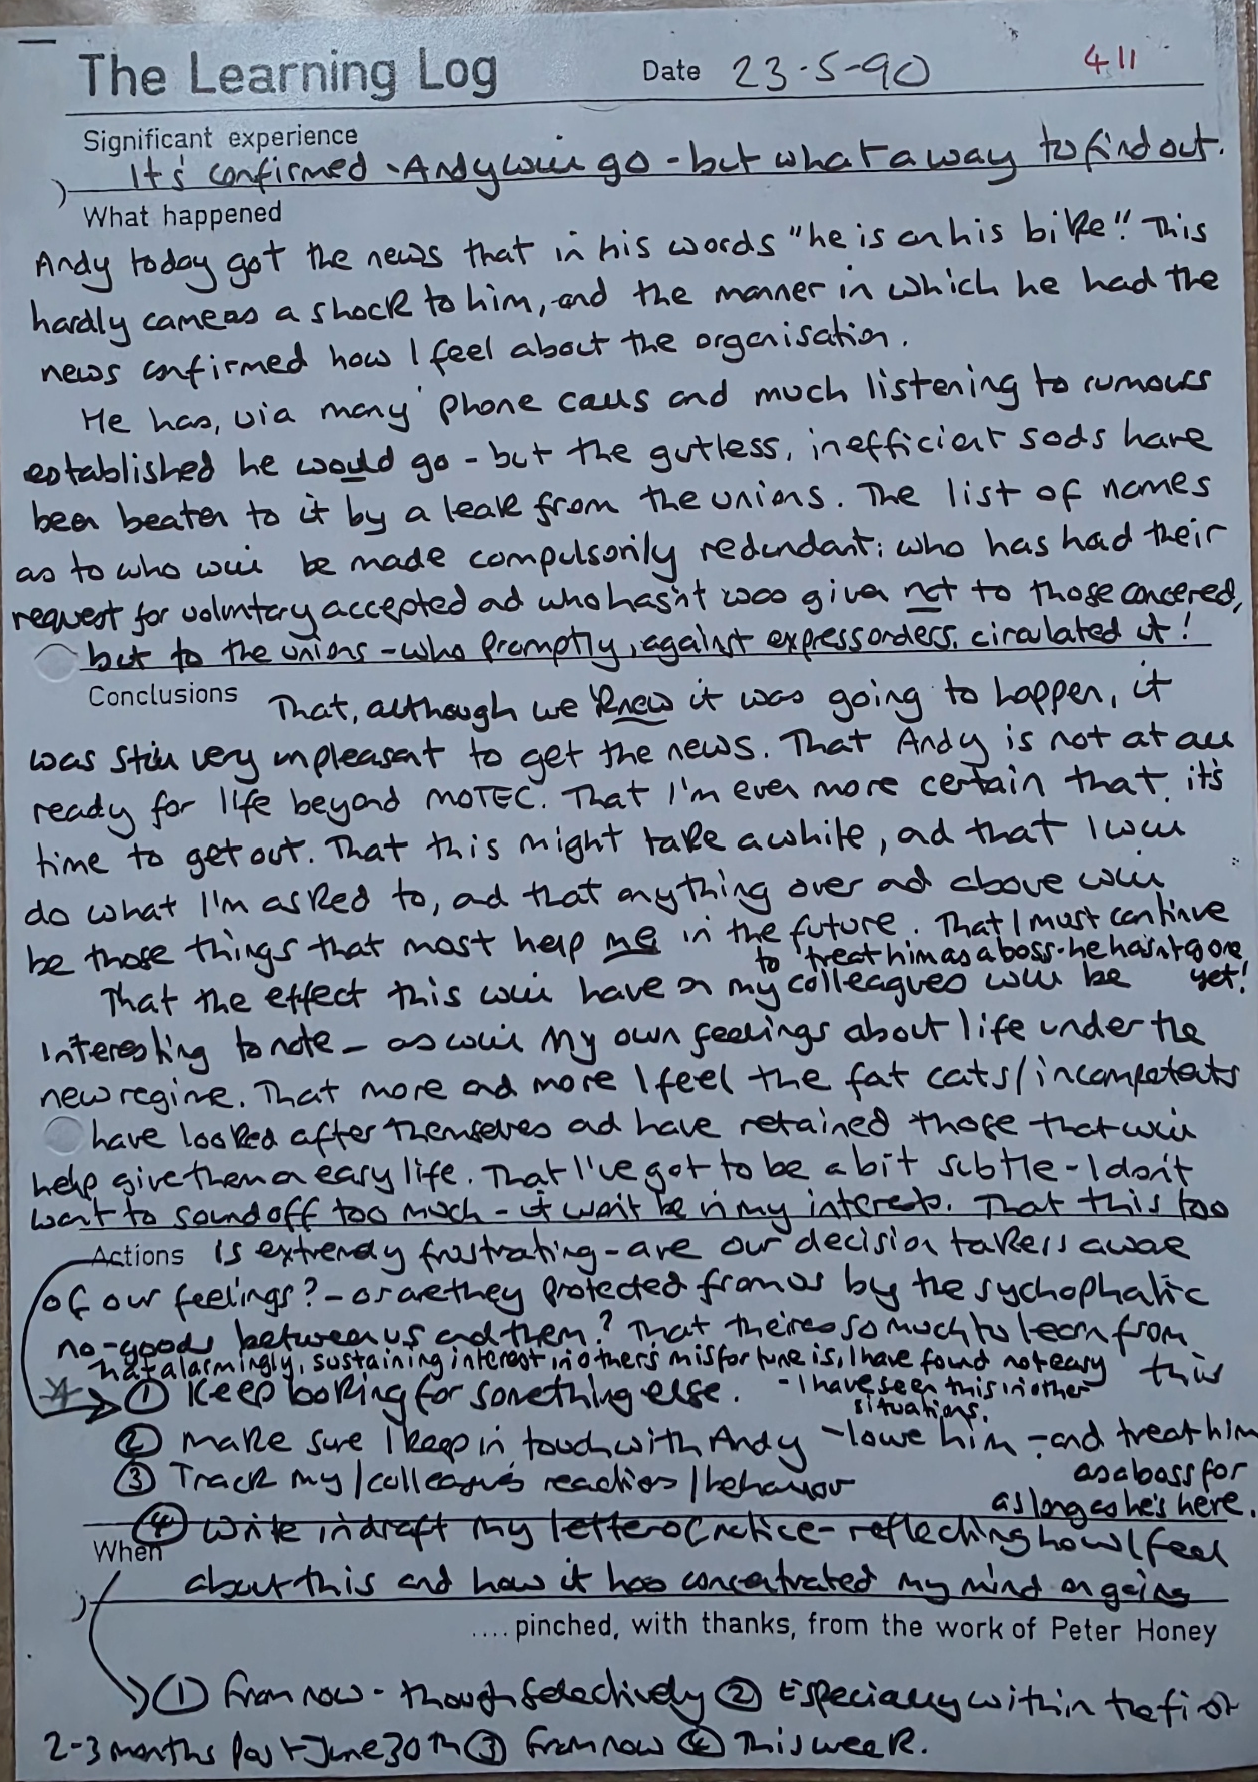 The Learning Log Date 23-5-90 411
Significant experience
It's confirmed - Andy will go - but what a way to find out.
What happened
Andy today got the news that in his words "he is on his bike"! This
hardly came as a shock to him, and the manner in which he had the
news confirmed how I feel about the organisation.
He has, via many phone calls and much listening to rumours
established he would go - but the gutless, inefficient sods have
been beaten to it by a leak from the unions. The list of names
as to who will be made compulsorily redundant; who has had their
request for voluntary accepted ad who hasn't was given not to those concered,
but to the unions - who promptly, against express orders, circulated it!
Conclusions That, although we knew it was going to happen, it
was still very unpleasant to get the news. That Andy is not at all
ready for life beyond MOTEC. That I'm even more certain that it's
time to get out. That this might take a while, ad that I will
do what I'm asked to, ad that anything over ad above will
be those things that most help me in the future. That I must continue
to treat him as a boss - he hasn't gone
yet!
That the effect this will have on my colleagues will be
interesting to note - as will my own feelings about life under the
new regime. That more and more I feel the fat cats/incompetents
have looked after themselves ad have retained those that will
help give them an easy life. That I've got to be a bit subtle - I don't
want to sound off too much - it won't be in my interests. That this too
Actions is extremely frustrating - are our decision takers aware
of our feelings? - or are they protected from us by the sychophatic
no-goods between us and them? That there's so much to learn from
this
That alarmingly, sustaining interest in other's misfortune is, I have found not easy
- I have seen this in other
situations.
① Keep looking for something else.
② Make sure I keep in touch with Andy - I owe him - and treat him
as a boss for
as long as he's here.
③ Track my/colleague's reactions/behaviour
④ Write in draft my letter of notice - reflecting how I feel
When
about this and how it has concentrated my mind on going
.... pinched, with thanks, from the work of Peter Honey
① From now - though selectively ② Especially within the first
2-3 months post June 30th ③ From now ④ This week.